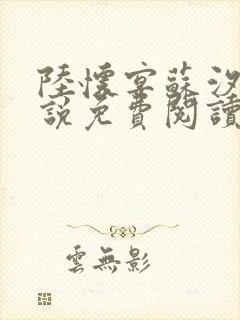 陸懷宴蘇汐
說免費閱讀
雲無影